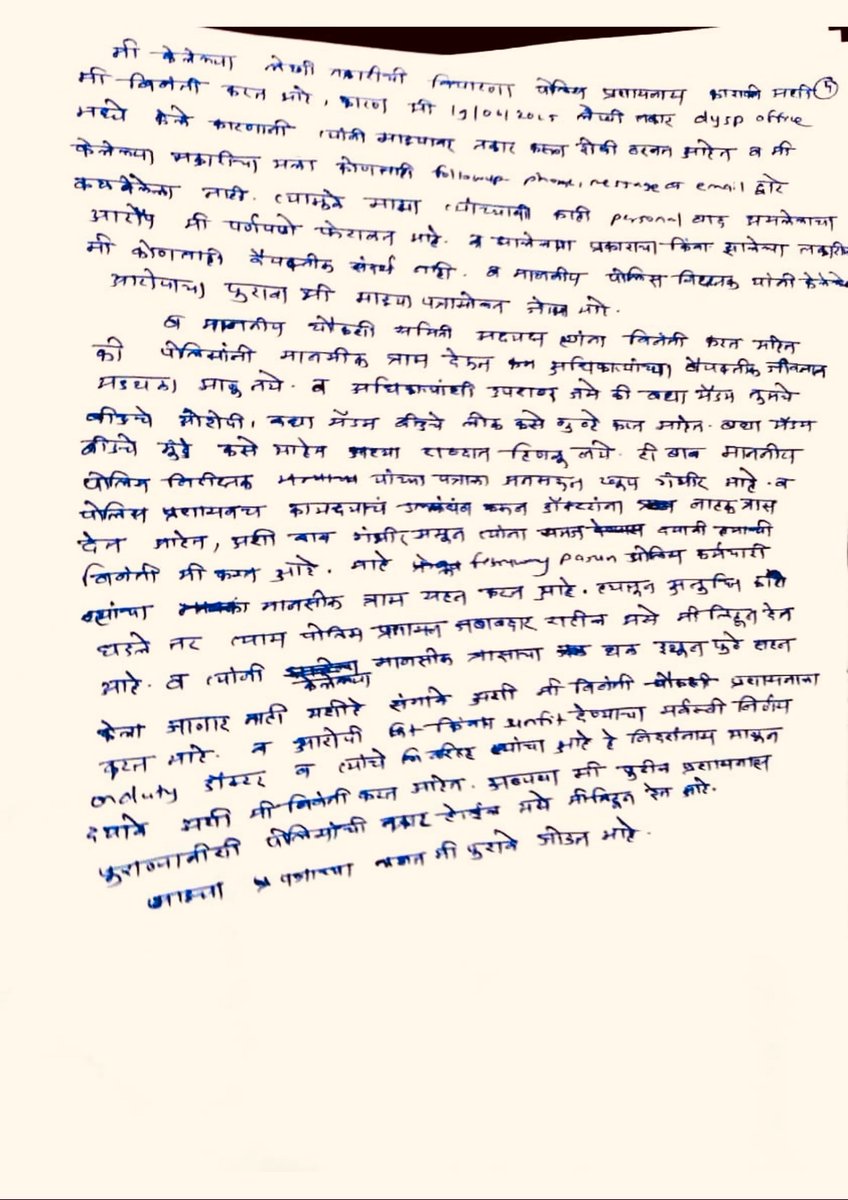 मी केलेल्या लेखी तक्रारीची विचारणा पोलिस प्रशासनास करावी अशी ५
मी विनंती करत आहे, कारण मी 19/06/2025 लेखी तक्रार dysp office
मध्ये केले कारणानी त्यांनी माझ्यावर तक्रार करून दोषी ठरवत आहेत व मी
केलेल्या तक्रारीचा मला कोणताही followup phone, message व email द्वारे
कळवलेला नाही. त्यामुळे माझा त्यांच्याशी काही personal वाद असलेल्याचा
आरोप मी पूर्णपणे फेटाळत आहे. व झालेल्या प्रकाराचा किंवा झालेल्या तक्रारीचा
मी कोणताही वैयक्तीक संदर्भ नाही. व माननीय पोलिस निरीक्षक यांनी केलेल्या
आरोपाचा पुरावा मी माझ्या पत्रासोबत जोडत आहे.
व माननीय चौकशी समिती सदस्य त्यांना विनंती करत आहेत
की पोलिसांनी मानसीक त्रास देऊन अधिकाऱ्यांच्या वैयक्तीक जीवनात
अडथळा आणू नये. व अधिकाऱ्यांशी जसे की बघा मॅडम तुमचे
बीडचे आरोपी, बघा मॅडम बीडचे लोक कसे गुन्हे करत आहेत. बघा मॅडम
बीडचे मुंडे कसे आहेत अश्या शब्दात हिणवू नये. ही बाब माननीय
पोलिस निरीक्षक यांच्या पत्राला अनुसरून खूप गंभीर आहे. व
पोलिस प्रशासनच कायद्याचं उल्लंघन करून डॉक्टरांना नाहक त्रास
देत आहेत, अशी बाब गंभीर असून त्यांना समज द्यावी अशी
विनंती मी करत आहे. february pasun पोलिस कर्मचारी
यांचा मानसीक त्रास सहन करत आहे. त्यातून अनुचित काही
घडले तर त्यास पोलिस प्रशासन जबाबदार राहील असे मी लिहून देत
आहे. व त्यांनी केलेल्या मानसीक त्रासाचा
केला जाणार नाही याची अशी मी विनंती प्रशासनाला
करत आहे. व आरोपी fit किंवा unfit देण्याचा सर्वस्वी निर्णय
onduty डॉक्टर व त्यांचे वरिष्ठ यांचा आहे हे निदर्शनास आणून
द्यावे अशी मी विनंती करत आहे. अन्यथा मी पुढील प्रशासनास
पुराव्यानीशी पोलिसांची तक्रार असे मी लिहून देत आहे.
माझ्या पत्राच्या मी पुरावे जोडत आहे.